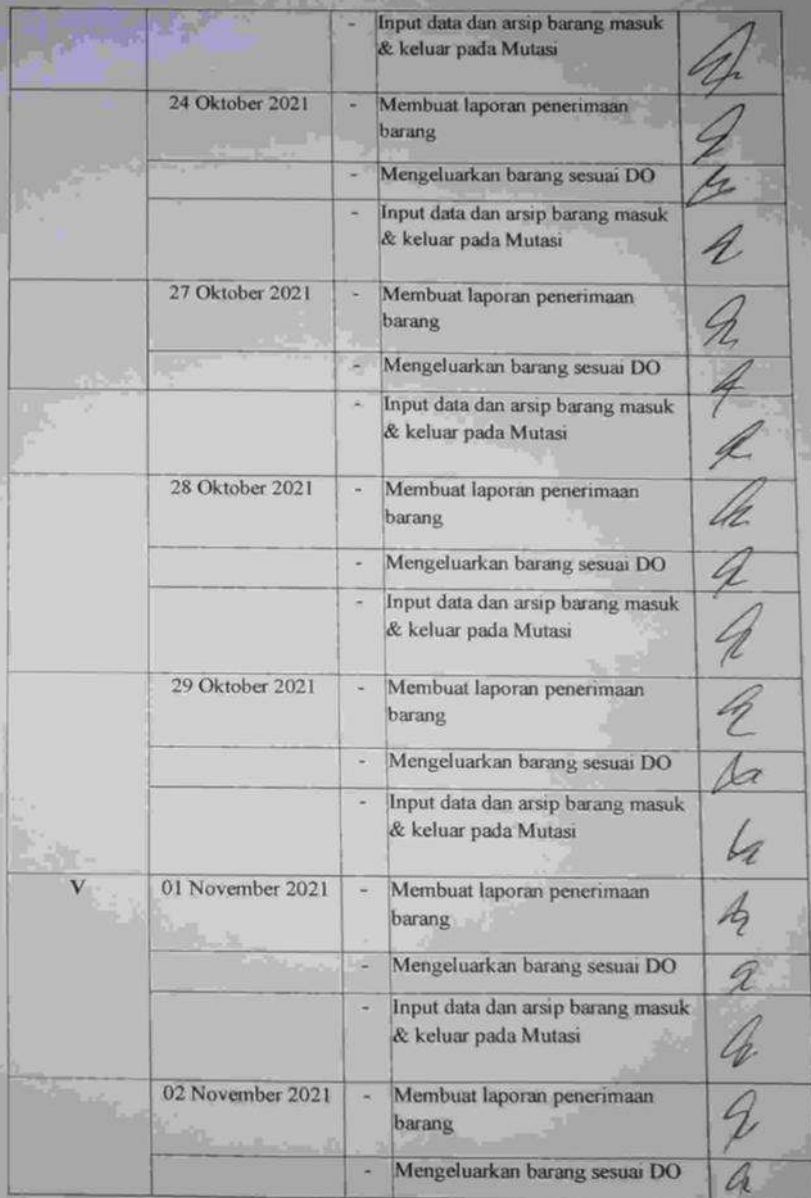 - Input data dan arsip barang masuk
& keluar pada Mutasi
24 Oktober 2021 - Membuat laporan penerimaan
barang
- Mengeluarkan barang sesuai DO
- Input data dan arsip barang masuk
& keluar pada Mutasi
27 Oktober 2021 - Membuat laporan penerimaan
barang
- Mengeluarkan barang sesuai DO
- Input data dan arsip barang masuk
& keluar pada Mutasi
28 Oktober 2021 - Membuat laporan penerimaan
barang
- Mengeluarkan barang sesuai DO
- Input data dan arsip barang masuk
& keluar pada Mutasi
29 Oktober 2021 - Membuat laporan penerimaan
barang
- Mengeluarkan barang sesuai DO
- Input data dan arsip barang masuk
& keluar pada Mutasi
V 01 November 2021 - Membuat laporan penerimaan
barang
- Mengeluarkan barang sesuai DO
- Input data dan arsip barang masuk
& keluar pada Mutasi
02 November 2021 - Membuat laporan penerimaan
barang
- Mengeluarkan barang sesuai DO